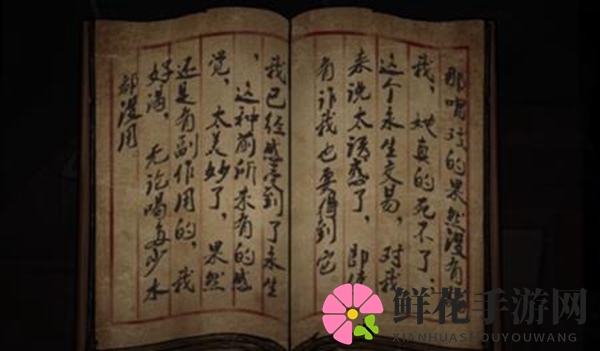 那的果然没有
我，她真的死不了，
这个永生交易，对我
来说太诱惑了，即使
有诈我也要得到它
我已经感受到了永生
，这种前所未有的感
觉，太美妙了，果然
还是有副作用的，我
好渴，无论喝多少水
都没用。
鲜花手游网
XIANHUASHOUYOUWANG